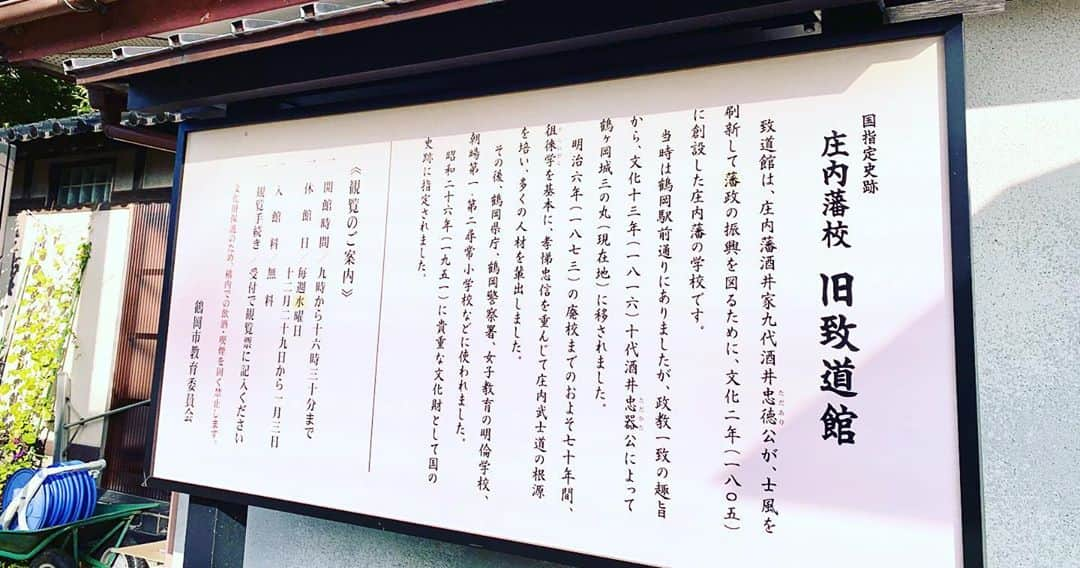 国指定史跡
庄内藩校 旧致道館
致道館は、庄内藩酒井家九代酒井忠徳公が、士風を
ただあり
刷新して藩政の振興を図るために、文化二年(一八〇五)
に創設した庄内藩の学校です。
当時は鶴岡駅前通りにありましたが、政教一致の趣旨
から、文化十三年(一八一六)十代酒井忠器公によって
ただかた
鶴ヶ岡城三の丸(現在地)に移されました。
明治六年(一八七三)の廃校までのおよそ七十年間、
徂徠学を基本に、孝悌忠信を重んじて庄内武士道の根源
を培い、多くの人材を輩出しました。
その後、鶴岡県庁、鶴岡警察署、女子教育の明倫学校、
朝暘第一・第二尋常小学校などに使われました。
昭和二十六年(一九五一)に貴重な文化財として国の
史跡に指定されました。
《観覧のご案内》
一 開館時間/九時から十六時三十分まで
一 休館日/毎週水曜日
十二月二十九日から一月三日
一 入館料/無料
一 観覧手続き/受付で観覧票に記入ください
文化財保護のため、構内での飲酒・喫煙を固く禁止します。
鶴岡市教育委員会